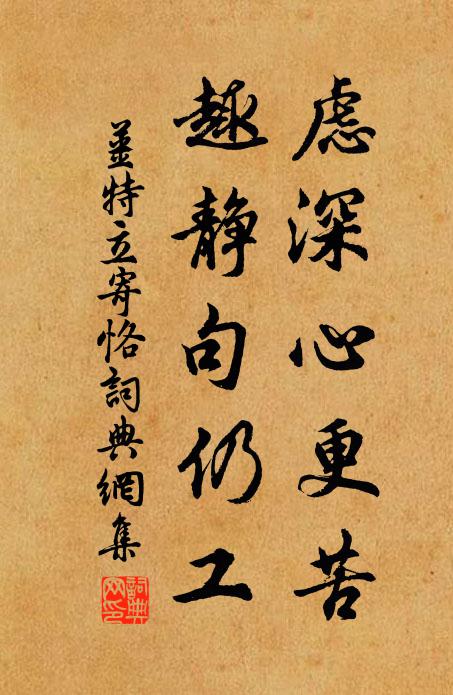 慮深心更苦
趣静句仍工
姜特立寄恪詞典網集
詞典網印